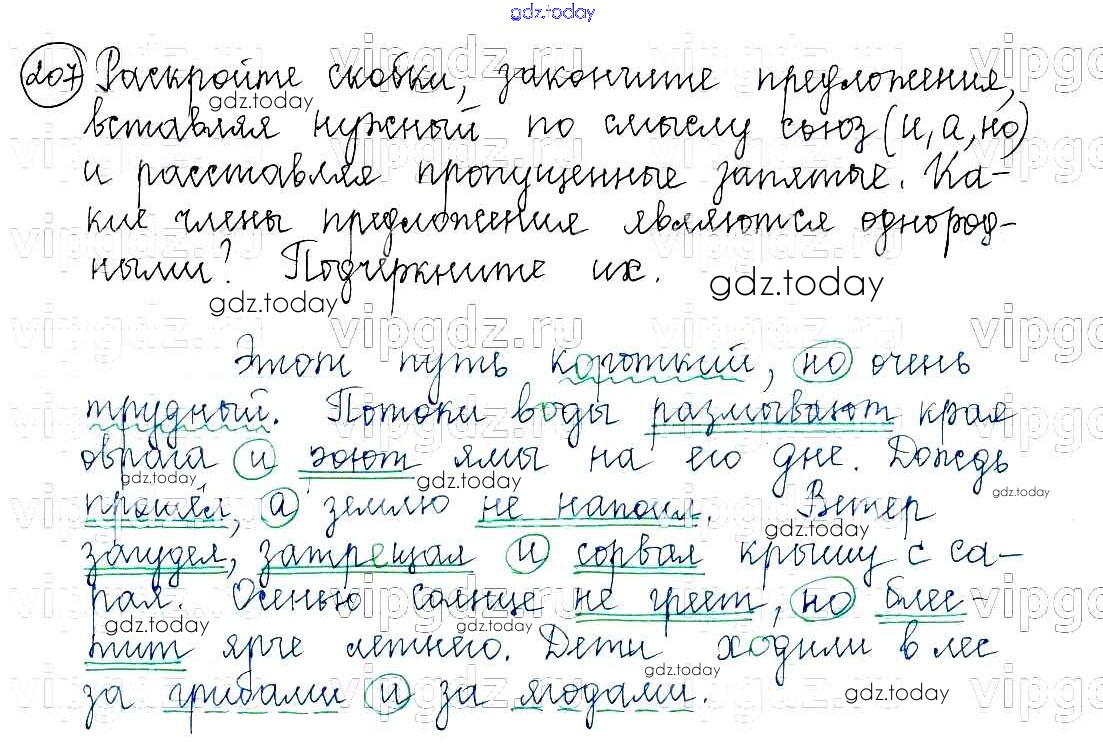 gdz.today
207 Раскройте скобки, закончите предложения,
вставляя нужный по смыслу союз (и, а, но)
и расставляя пропущенные запятые. Ка-
кие члены предложения являются однород-
ными? Подчеркните их.
Этот путь короткий, но очень
трудный. Потоки воды размывают края
оврага и роют ямы на его дне. Дождь
прошёл, а землю не напоил. Ветер
загудел, затрещал и сорвал крышу с са-
рая. Осенью солнце не греет, но блес-
тит ярче летнего. Дети ходили в лес
за грибами и за ягодами.